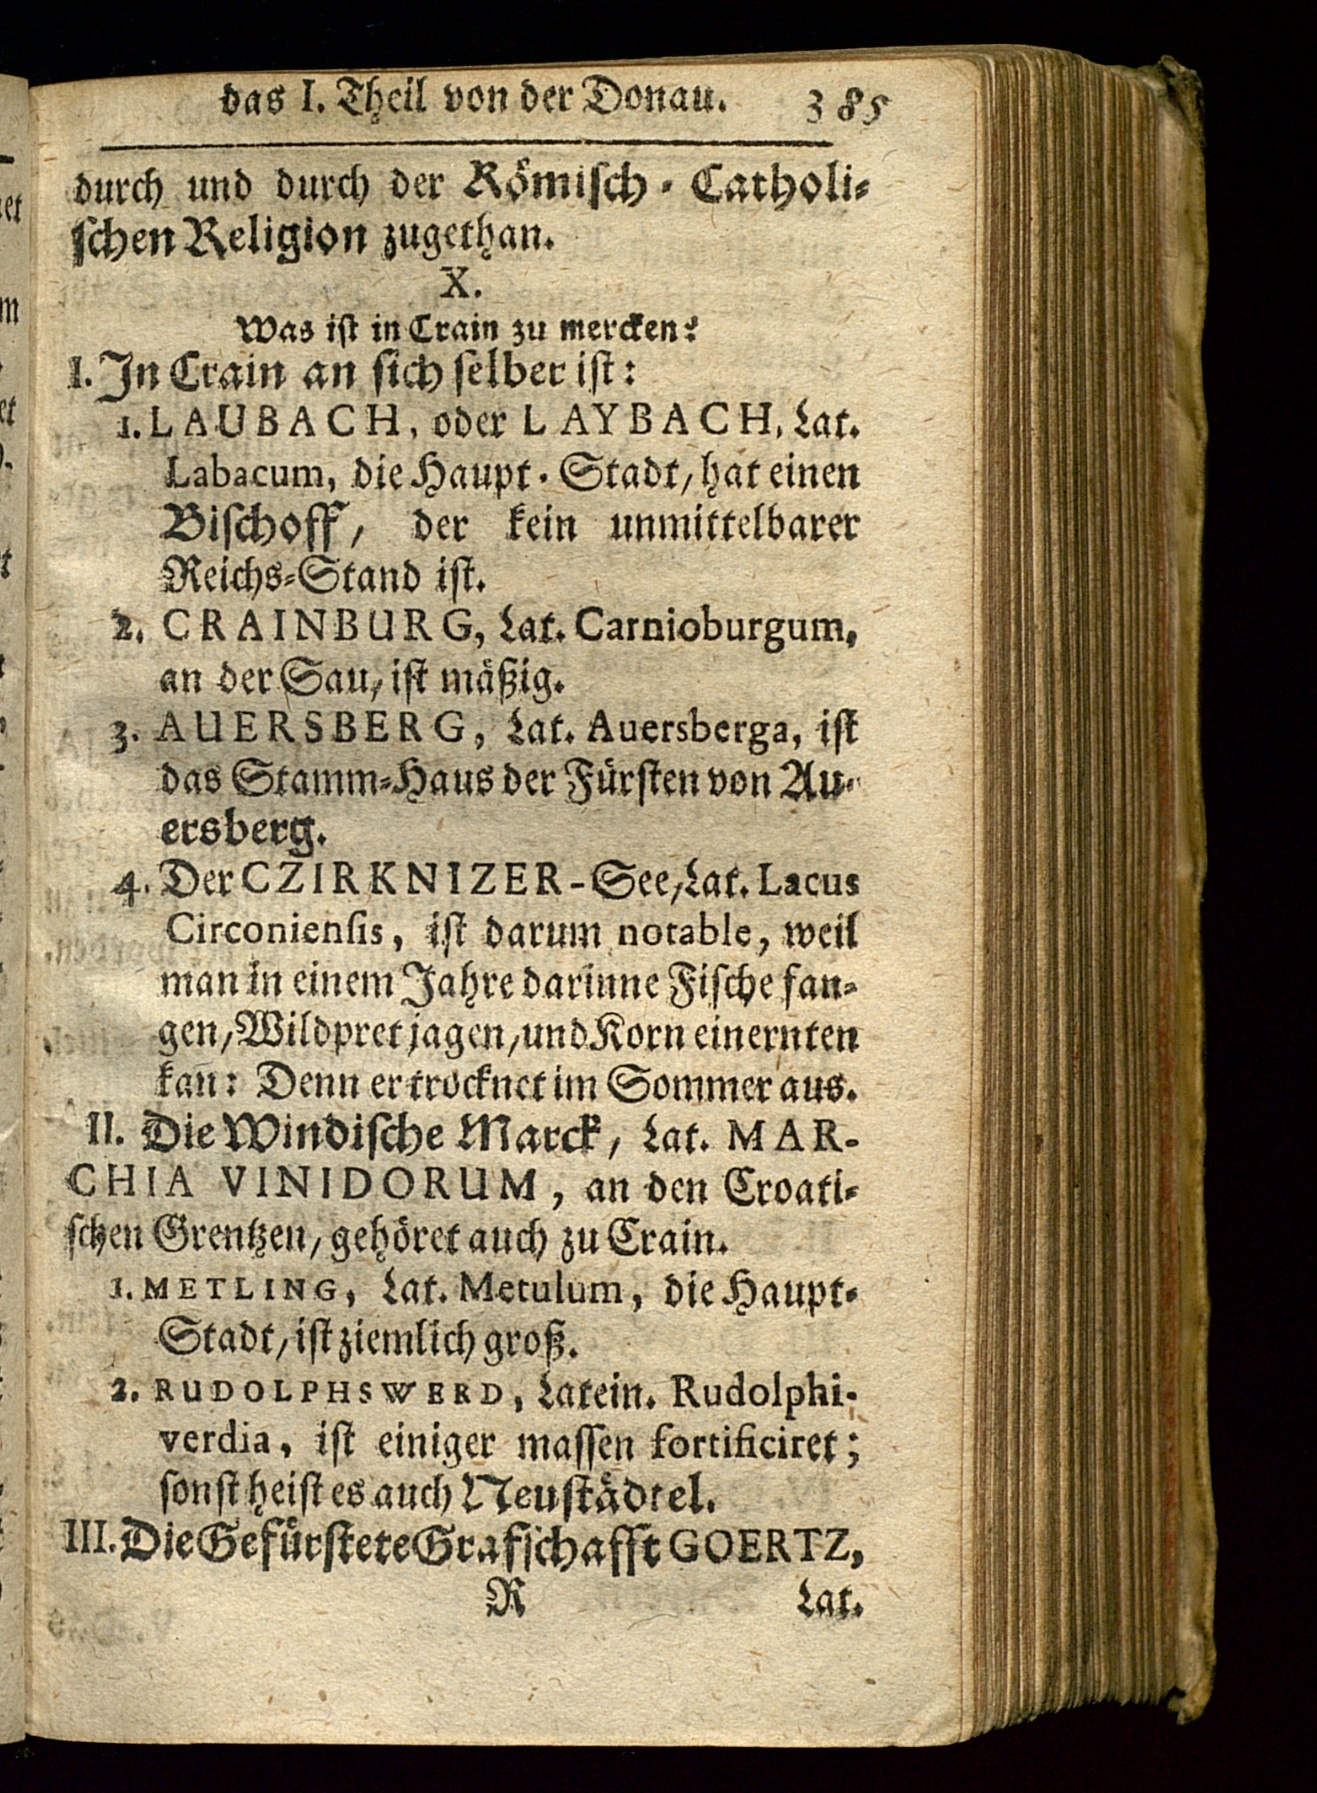 das I. Theil von der Donau. 385
durch und durch der Römisch-Catholi-
schen Religion zugethan.
X.
Was ist in Crain zu mercken?
I. In Crain an sich selber ist:
1. LAUBACH, oder LAYBACH, Lat.
Labacum, die Haupt-Stadt, hat einen
Bischoff, der kein unmittelbarer
Reichs-Stand ist.
2. CRAINBURG, Lat. Carnioburgum,
an der Sau, ist mäßig.
3. AUERSBERG, Lat. Auersberga, ist
das Stamm-Haus der Fürsten von Au-
ersberg.
4. Der CZIRKNIZER-See, Lat. Lacus
Circoniensis, ist darum notable, weil
man in einem Jahre darinne Fische fan-
gen, Wildpret jagen, und Korn einernten
kan: Denn er trocknet im Sommer aus.
II. Die Windische Marck, Lat. MAR-
CHIA VINIDORUM, an den Croati-
schen Grentzen, gehöret auch zu Crain.
1. METLING, Lat. Metulum, die Haupt-
Stadt, ist ziemlich groß.
2. RUDOLPHSWERD, Latein. Rudolphi-
verdia, ist einiger massen fortificiret;
sonst heist es auch Neustädtel.
III. Die Gefürstete Grafschafft GOERTZ,
R Lat.